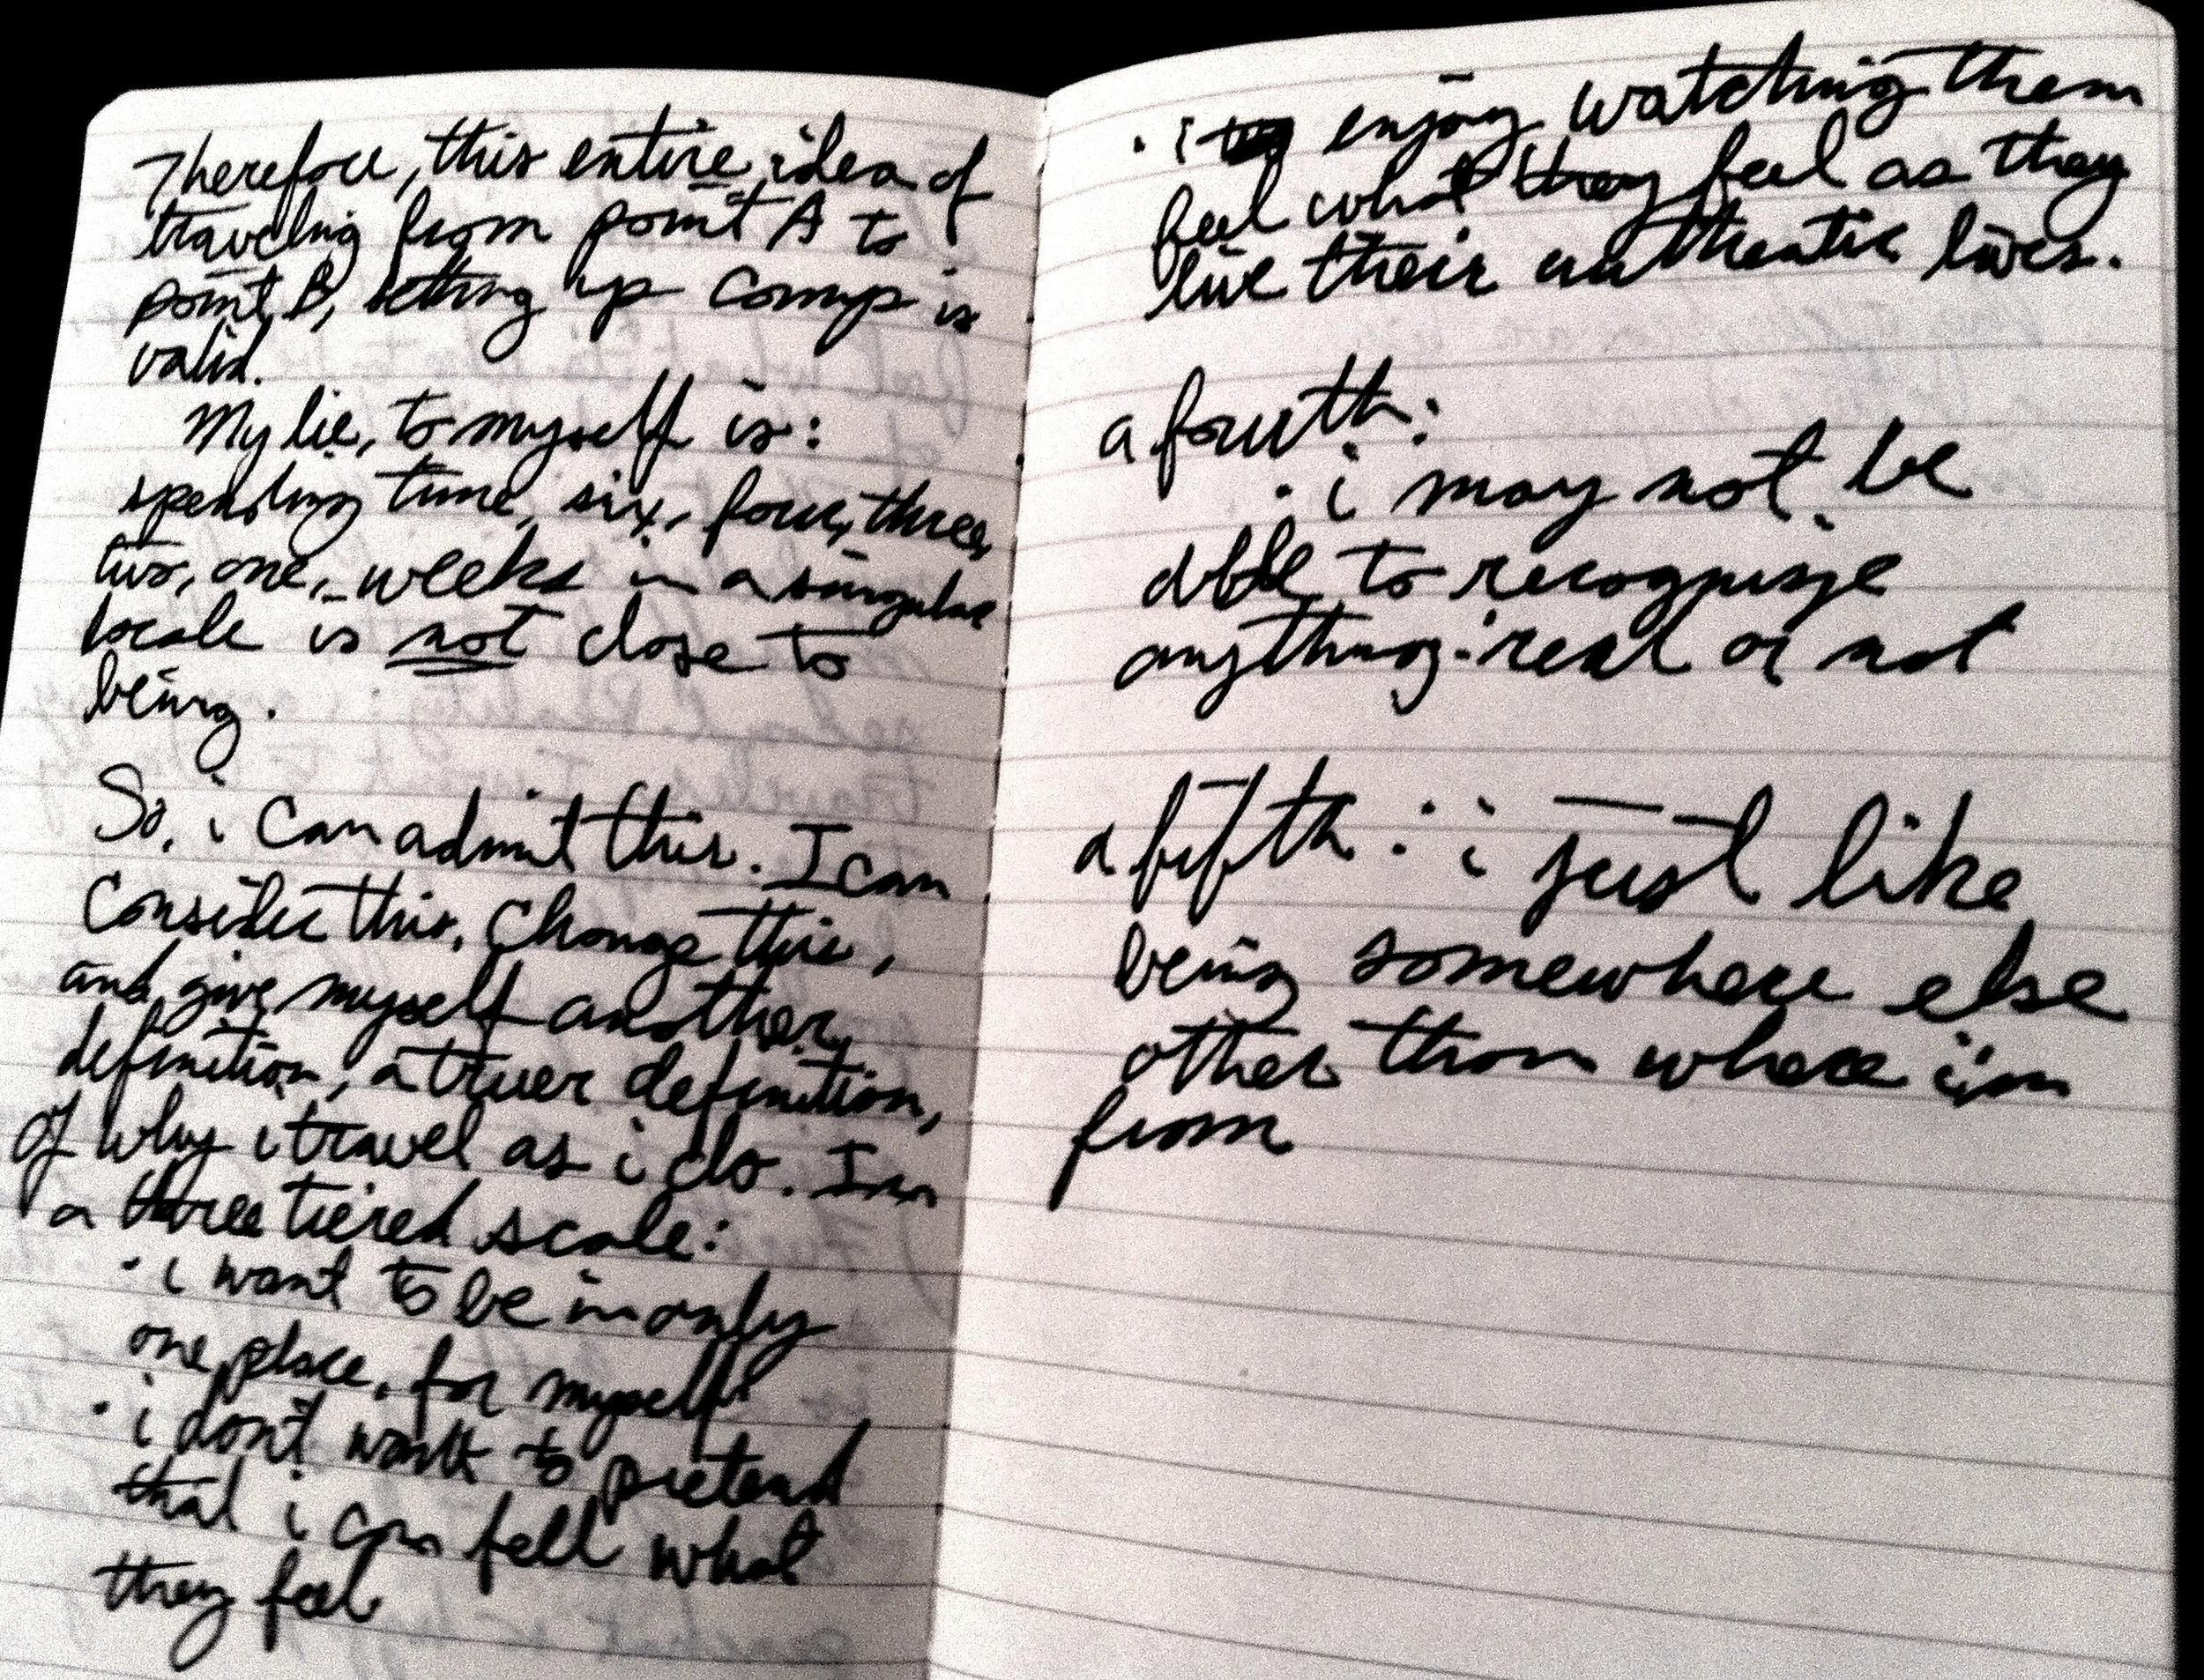 Therefore, this entire idea of
traveling from point A to
point B, setting up camp is
valid.
My lie, to myself is:
spending time, six, four, three,
two, one, weeks in a singular
locale is not close to
being.
So, i can admit this. I can
consider this, change this,
and give myself another
definition, a truer definition,
of why i travel as i do. In
a three tiered scale:
· i want to be in only
one place, for myself
· i don't want to pretend
that i can fell what
they feel
· i enjoy watching them
feel what they feel as they
live their authentic lives.
a fourth:
· i may not be
able to recognize
anything real or not
a fifth: i just like
being somewhere else
other than where i'm
from